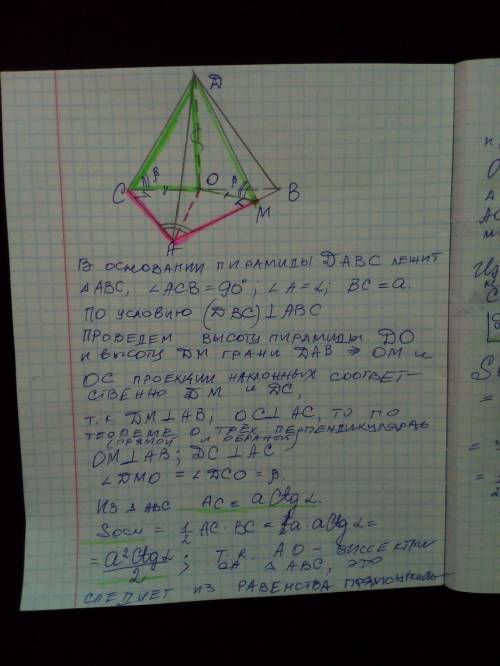 D
β
O
β
C
B
M
A
В ОСНОВАНИИ ПИРАМИДЫ DABC ЛЕЖИТ
△ABC, ∠ACB=90°; ∠A=α; BC=a.
ПО УСЛОВИЮ (DBC)⊥ABC
ПРОВЕДЕМ ВЫСОТУ ПИРАМИДЫ DO
И ВЫСОТУ DM ГРАНИ DAB ⇒ OM И
OC ПРОЕКЦИИ НАКЛОННЫХ СООТВЕТ-
СТВЕННО DM И DC,
Т.К. DM⊥AB; OC⊥AC, ТО ПО
ТЕОРЕМЕ О ТРЁХ ПЕРПЕНДИКУЛЯРАХ
(ПРЯМОЙ И ОБРАТНОЙ)
OM⊥AB; DC⊥AC
∠DMO=∠DCO=β.
ИЗ △ABC AC=actgα.
Sосн=½AC·BC=½a·actgα=
=a²ctgα/2; Т.К. AO-БИССЕКТРИ
СА △ABC, ЭТО
СЛЕДУЕТ ИЗ РАВЕНСТВА ПРЯМОУГОЛЬ-